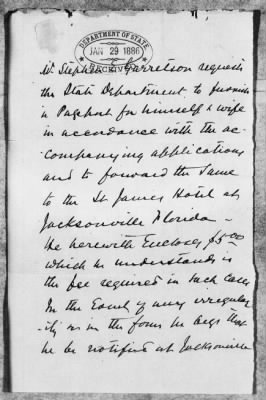 DEPARTMENT OF STATE
JAN 29 1886
RECEIVED
Mr Stephen Garretson requests
the State Department to furnish
a Passport for himself & wife
in accordance with the ac-
companying applications
and to forward the same
to the St James Hotel at
Jacksonville Florida -
He herewith Encloses $5.00
which he understands is
the fee required in such cases
In the Event of any irregular
-ity in the form he begs that
he be notified at Jacksonville